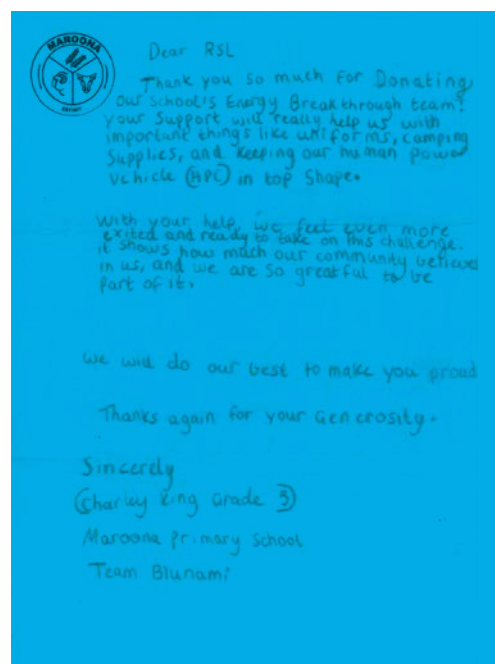 MAROONA
Dear RSL
Thank you so much For Donating
our school's Energy Breakthrough team!
your Support will really help us with
important things like uniforms, camping
Supplies, and keeping our human power
vehicle (HPC) in top Shape.
with your help, we feel even more
exited and ready to take on this challenge.
it shows how much our community believes
in us, and we are so greatful to be
Part of it.
we will do our best to make you proud
Thanks again for your Generosity.
Sincerely
Charley King Grade 5
Maroona Primary School
Team Blunami